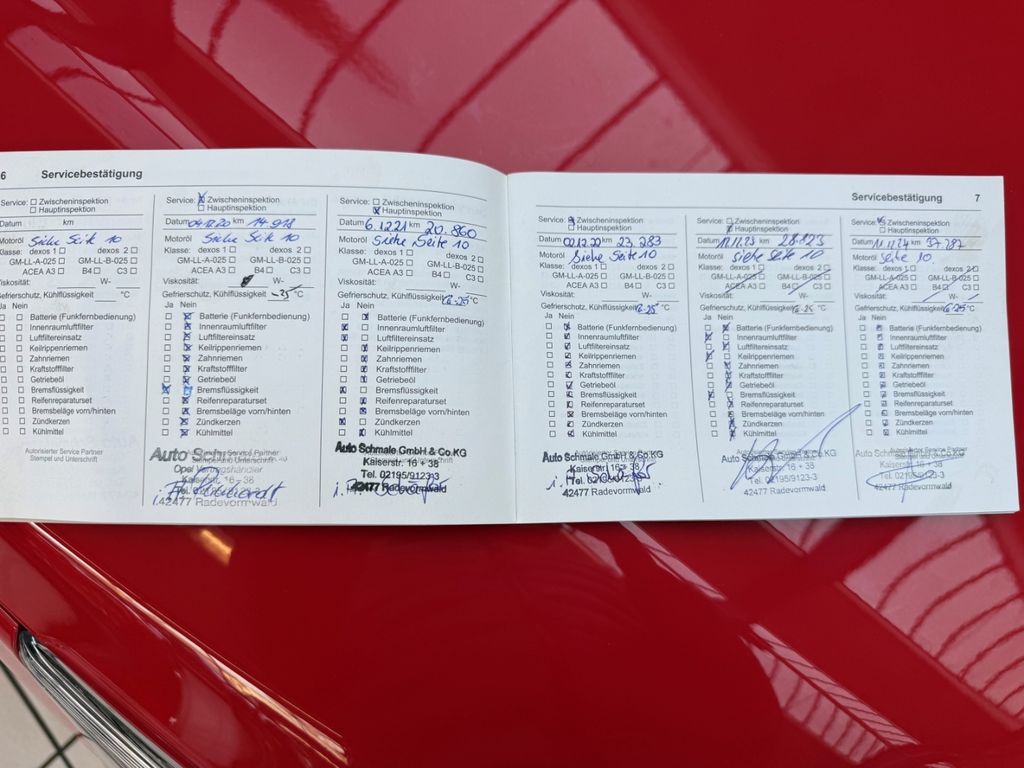 6 Servicebestätigung
Service: Zwischeninspektion
Hauptinspektion
Datum km
Motoröl Siehe Seite 10
Klasse: dexos 1 dexos 2
GM-LL-A-025 GM-LL-B-025
ACEA A3 B4 C3
Viskosität: W-
Gefrierschutz, Kühlflüssigkeit °C
Ja Nein
Batterie (Funkfernbedienung)
Innenraumluftfilter
Luftfiltereinsatz
Keilrippenriemen
Zahnriemen
Kraftstofffilter
Getriebeöl
Bremsflüssigkeit
Reifenreparaturset
Bremsbeläge vorn/hinten
Zündkerzen
Kühlmittel
Autorisierter Service Partner
Stempel und Unterschrift
Service: Zwischeninspektion
Hauptinspektion
Datum 04.12.20 km 14.918
Motoröl Siehe Seite 10
Klasse: dexos 1 dexos 2
GM-LL-A-025 GM-LL-B-025
ACEA A3 B4 C3
Viskosität: W-
Gefrierschutz, Kühlflüssigkeit -35 °C
Ja Nein
Batterie (Funkfernbedienung)
Innenraumluftfilter
Luftfiltereinsatz
Keilrippenriemen
Zahnriemen
Kraftstofffilter
Getriebeöl
Bremsflüssigkeit
Reifenreparaturset
Bremsbeläge vorn/hinten
Zündkerzen
Kühlmittel
Auto Schmale
Opel Vertragshändler
Kaiserstr. 16 - 38
42477 Radevormwald
Service: Zwischeninspektion
Hauptinspektion
Datum 6.12.21 km 20.860
Motoröl Siehe Seite 10
Klasse: dexos 1 dexos 2
GM-LL-A-025 GM-LL-B-025
ACEA A3 B4 C3
Viskosität: W-
Gefrierschutz, Kühlflüssigkeit -25 °C
Ja Nein
Batterie (Funkfernbedienung)
Innenraumluftfilter
Luftfiltereinsatz
Keilrippenriemen
Zahnriemen
Kraftstofffilter
Getriebeöl
Bremsflüssigkeit
Reifenreparaturset
Bremsbeläge vorn/hinten
Zündkerzen
Kühlmittel
Auto Schmale GmbH & Co.KG
Kaiserstr. 16 + 38
Tel. 02195/9123-3
42477 Radevormwald
Servicebestätigung 7
Service: Zwischeninspektion
Hauptinspektion
Datum 02.12.22 km 23.283
Motoröl Siehe Seite 10
Klasse: dexos 1 dexos 2
GM-LL-A-025 GM-LL-B-025
ACEA A3 B4 C3
Viskosität: W-
Gefrierschutz, Kühlflüssigkeit -25 °C
Ja Nein
Batterie (Funkfernbedienung)
Innenraumluftfilter
Luftfiltereinsatz
Keilrippenriemen
Zahnriemen
Kraftstofffilter
Getriebeöl
Bremsflüssigkeit
Reifenreparaturset
Bremsbeläge vorn/hinten
Zündkerzen
Kühlmittel
Auto Schmale GmbH & Co.KG
Kaiserstr. 16 + 38
Tel. 02195/9123-3
42477 Radevormwald
Service: Zwischeninspektion
Hauptinspektion
Datum km
Motoröl siehe Seite 10
Klasse: dexos 1 dexos 2
GM-LL-A-025 GM-LL-B-025
ACEA A3 B4 C3
Viskosität: W-
Gefrierschutz, Kühlflüssigkeit -25 °C
Ja Nein
Batterie (Funkfernbedienung)
Innenraumluftfilter
Luftfiltereinsatz
Keilrippenriemen
Zahnriemen
Kraftstofffilter
Getriebeöl
Bremsflüssigkeit
Reifenreparaturset
Bremsbeläge vorn/hinten
Zündkerzen
Kühlmittel
Auto Schmale GmbH & Co.KG
Kaiserstr. 16 + 38
Tel. 02195/9123-3
42477 Radevormwald
Service: Zwischeninspektion
Hauptinspektion
Datum km
Motoröl Seite 10
Klasse: dexos 1 dexos 2
GM-LL-A-025 GM-LL-B-025
ACEA A3 B4 C3
Viskosität: W-
Gefrierschutz, Kühlflüssigkeit -25 °C
Ja Nein
Batterie (Funkfernbedienung)
Innenraumluftfilter
Luftfiltereinsatz
Keilrippenriemen
Zahnriemen
Kraftstofffilter
Getriebeöl
Bremsflüssigkeit
Reifenreparaturset
Bremsbeläge vorn/hinten
Zündkerzen
Kühlmittel
Auto Schmale GmbH & Co.KG
Kaiserstr. 16 + 38
Tel. 02195/9123-3
42477 Radevormwald